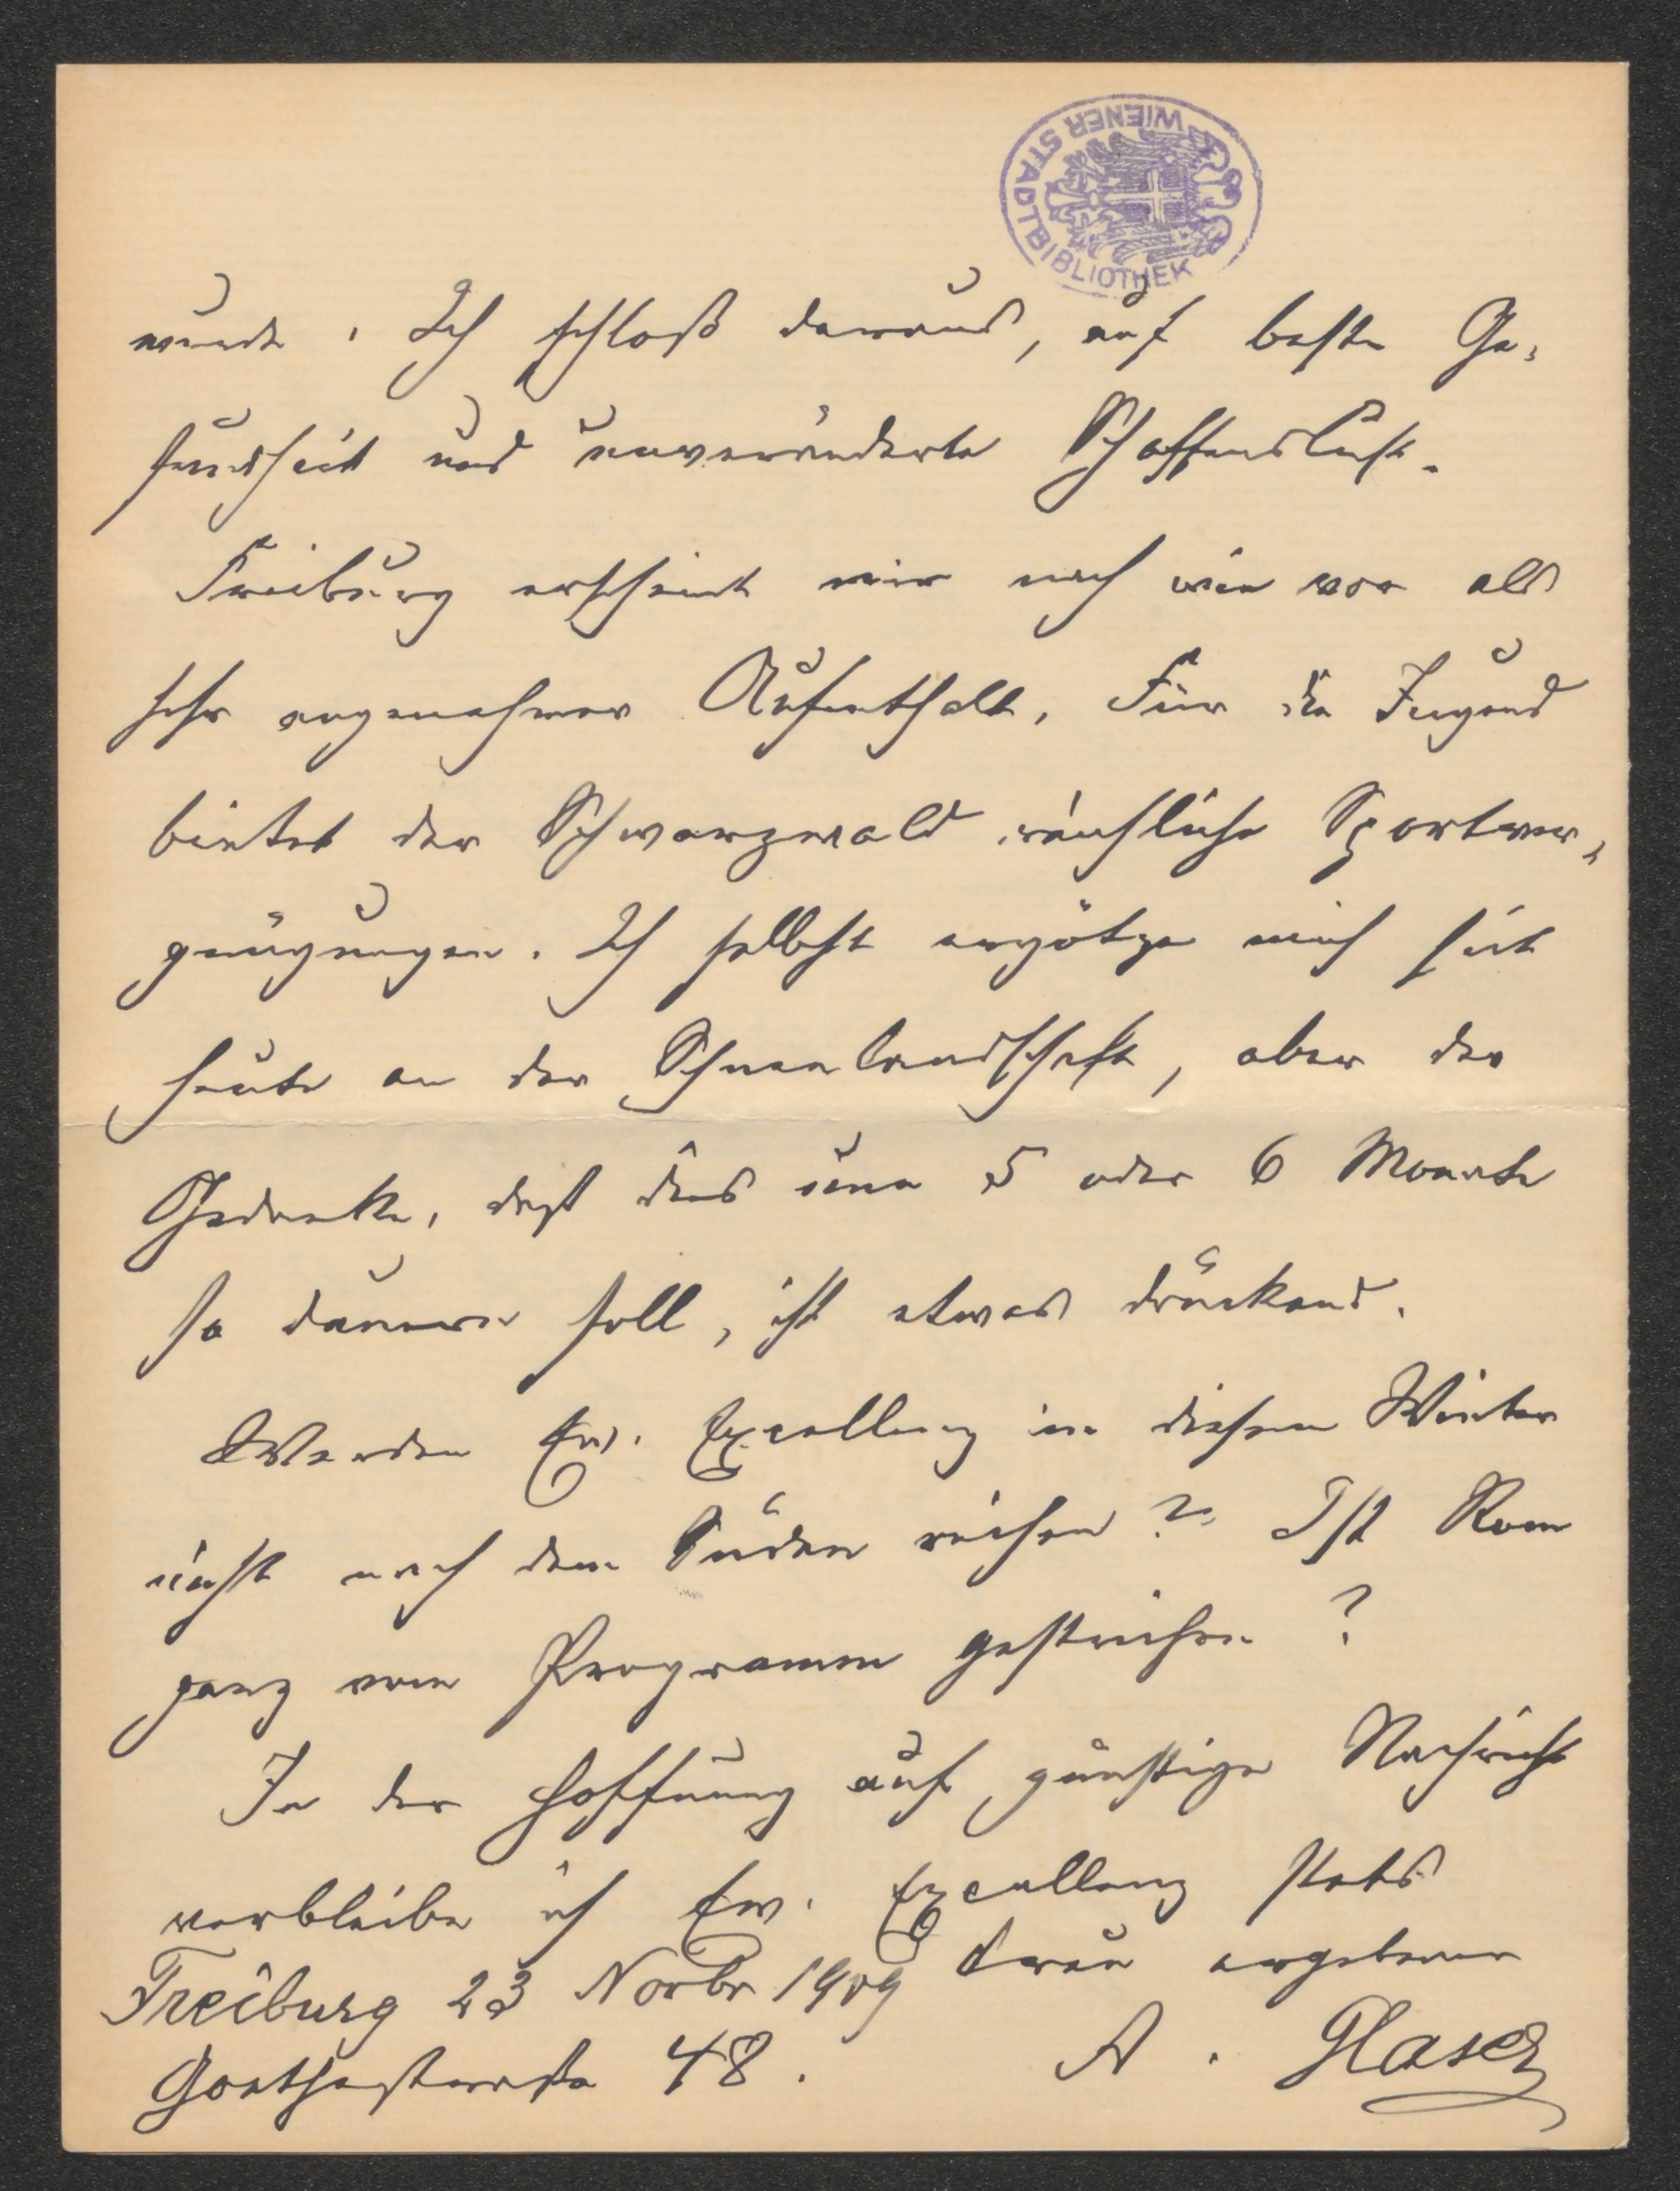 WIENER STADTBIBLIOTHEK
wurde. Ich schloß daraus, auf beste Ge-
sundheit und unveränderte Schaffenslust.
Freiburg erscheint mir nach wie vor als
sehr angenehmer Aufenthalt. Für die Jugend
bietet der Schwarzwald reichliche Sportver-
gnügungen. Ich selbst ergötze mich seit
heute an der Schneelandschaft, aber der
Gedanke, daß dies nun 5 oder 6 Monate
so dauern soll, ist etwas drückend.
Werden Ew. Excellenz in diesem Winter
nicht nach dem Süden reisen? Ist Rom
ganz vom Programm gestrichen?
In der Hoffnung auf günstige Nachricht
verbleibe ich Ew. Excellenz stets
treu ergebener
Freiburg 23 Novbr 1909
Goethestraße 48.
A. Glaser